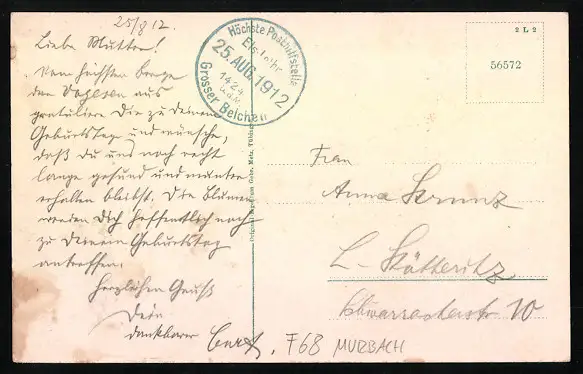 25/8 12.
Liebe Mutter!
Vom höchsten Berge
der Vogesen aus
gratuliere Dir zu deinem
Geburtstag und wünsche,
daß du uns noch recht
lange gesund und munter
erhalten bleibst. Die Blumen
werden Dich hoffentlich noch
zu Deinem Geburtstag
antreffen.
Herzlichen Gruß
Dein
dankbarer
Höchste Posthilfstelle
25. AUG. 1912
1424
Grosser Belchen
2 L 2
56572
Frau
Anna Strunz
L-Stötteritz
10
F68 MURBACH